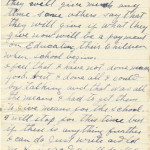 they will give me any
time some others say that
they will give is what they
give now will be a payment
on Educating their Children
when school begins.
that I have not done any
good but I done all I could
by talking and that was all
the means I had to get them
to give means for the school.
I will stop for this time but
if there is anything further
I can do just write and let